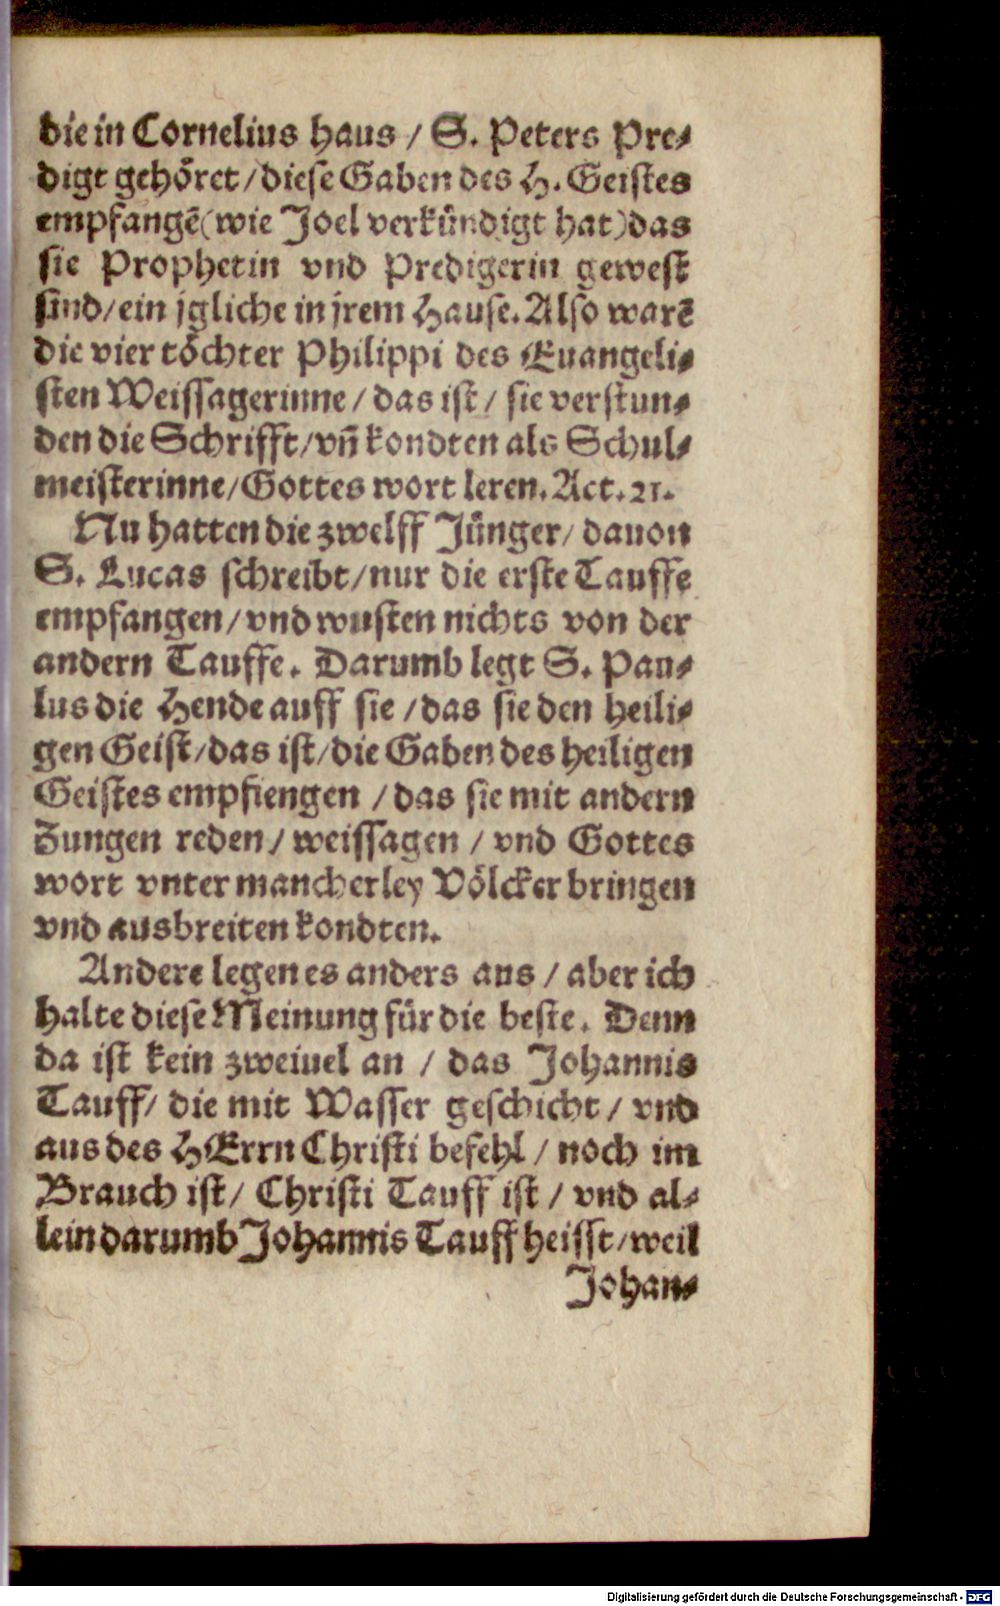 die in Cornelius haus / S. Peters Pre⸗
digt gehöret / diese Gaben des H. Geistes
empfangẽ (wie Joel verkündigt hat) das
sie Prophetin vnd Predigerin gewest
sind / ein jgliche in jrem Hause. Also warẽ
die vier töchter Philippi des Euangeli⸗
sten Weissagerinne / das ist / sie verstun⸗
den die Schrifft / vñ kondten als Schul⸗
meisterinne / Gottes wort leren. Act. 21.
Nu hatten die zwelff Jünger / dauon
S. Lucas schreibt / nur die erste Tauffe
empfangen / vnd wusten nichts von der
andern Tauffe. Darumb legt S. Pau⸗
lus die Hende auff sie / das sie den heili⸗
gen Geist / das ist / die Gaben des heiligen
Geistes empfiengen / das sie mit andern
Zungen reden / weissagen / vnd Gottes
wort vnter mancherley Völcker bringen
vnd ausbreiten kondten.
Andere legen es anders aus / aber ich
halte diese Meinung für die beste. Denn
da ist kein zweiuel an / das Johannis
Tauff / die mit Wasser geschicht / vnd
aus des HErrn Christi befehl / noch im
Brauch ist / Christi Tauff ist / vnd al⸗
lein darumb Johannis Tauff heisst / weil
Johan⸗
Digitalisierung gefördert durch die Deutsche Forschungsgemeinschaft - DFG